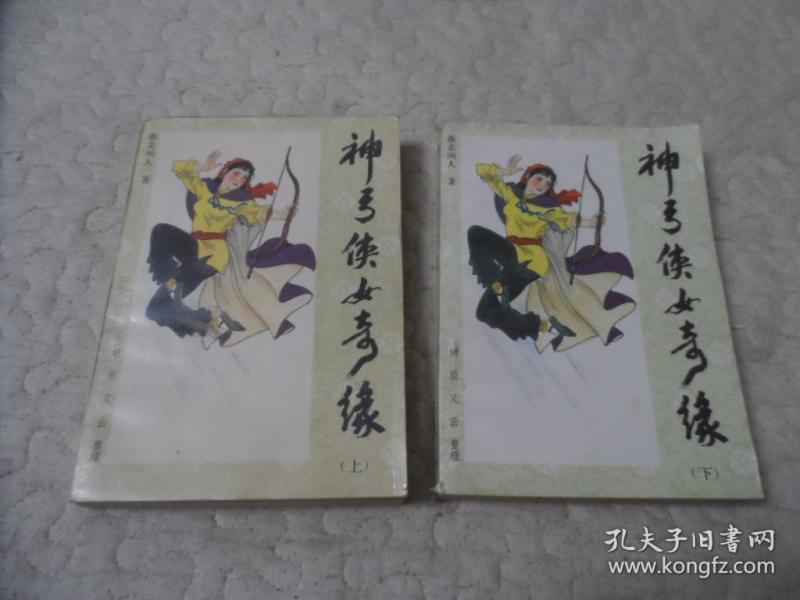 神弓侠女奇缘
（上）
燕北闲人 著
又云 整理
神弓侠女奇缘
（下）
燕北闲人 著
又云 整理
孔夫子旧书网
www.kongfz.com